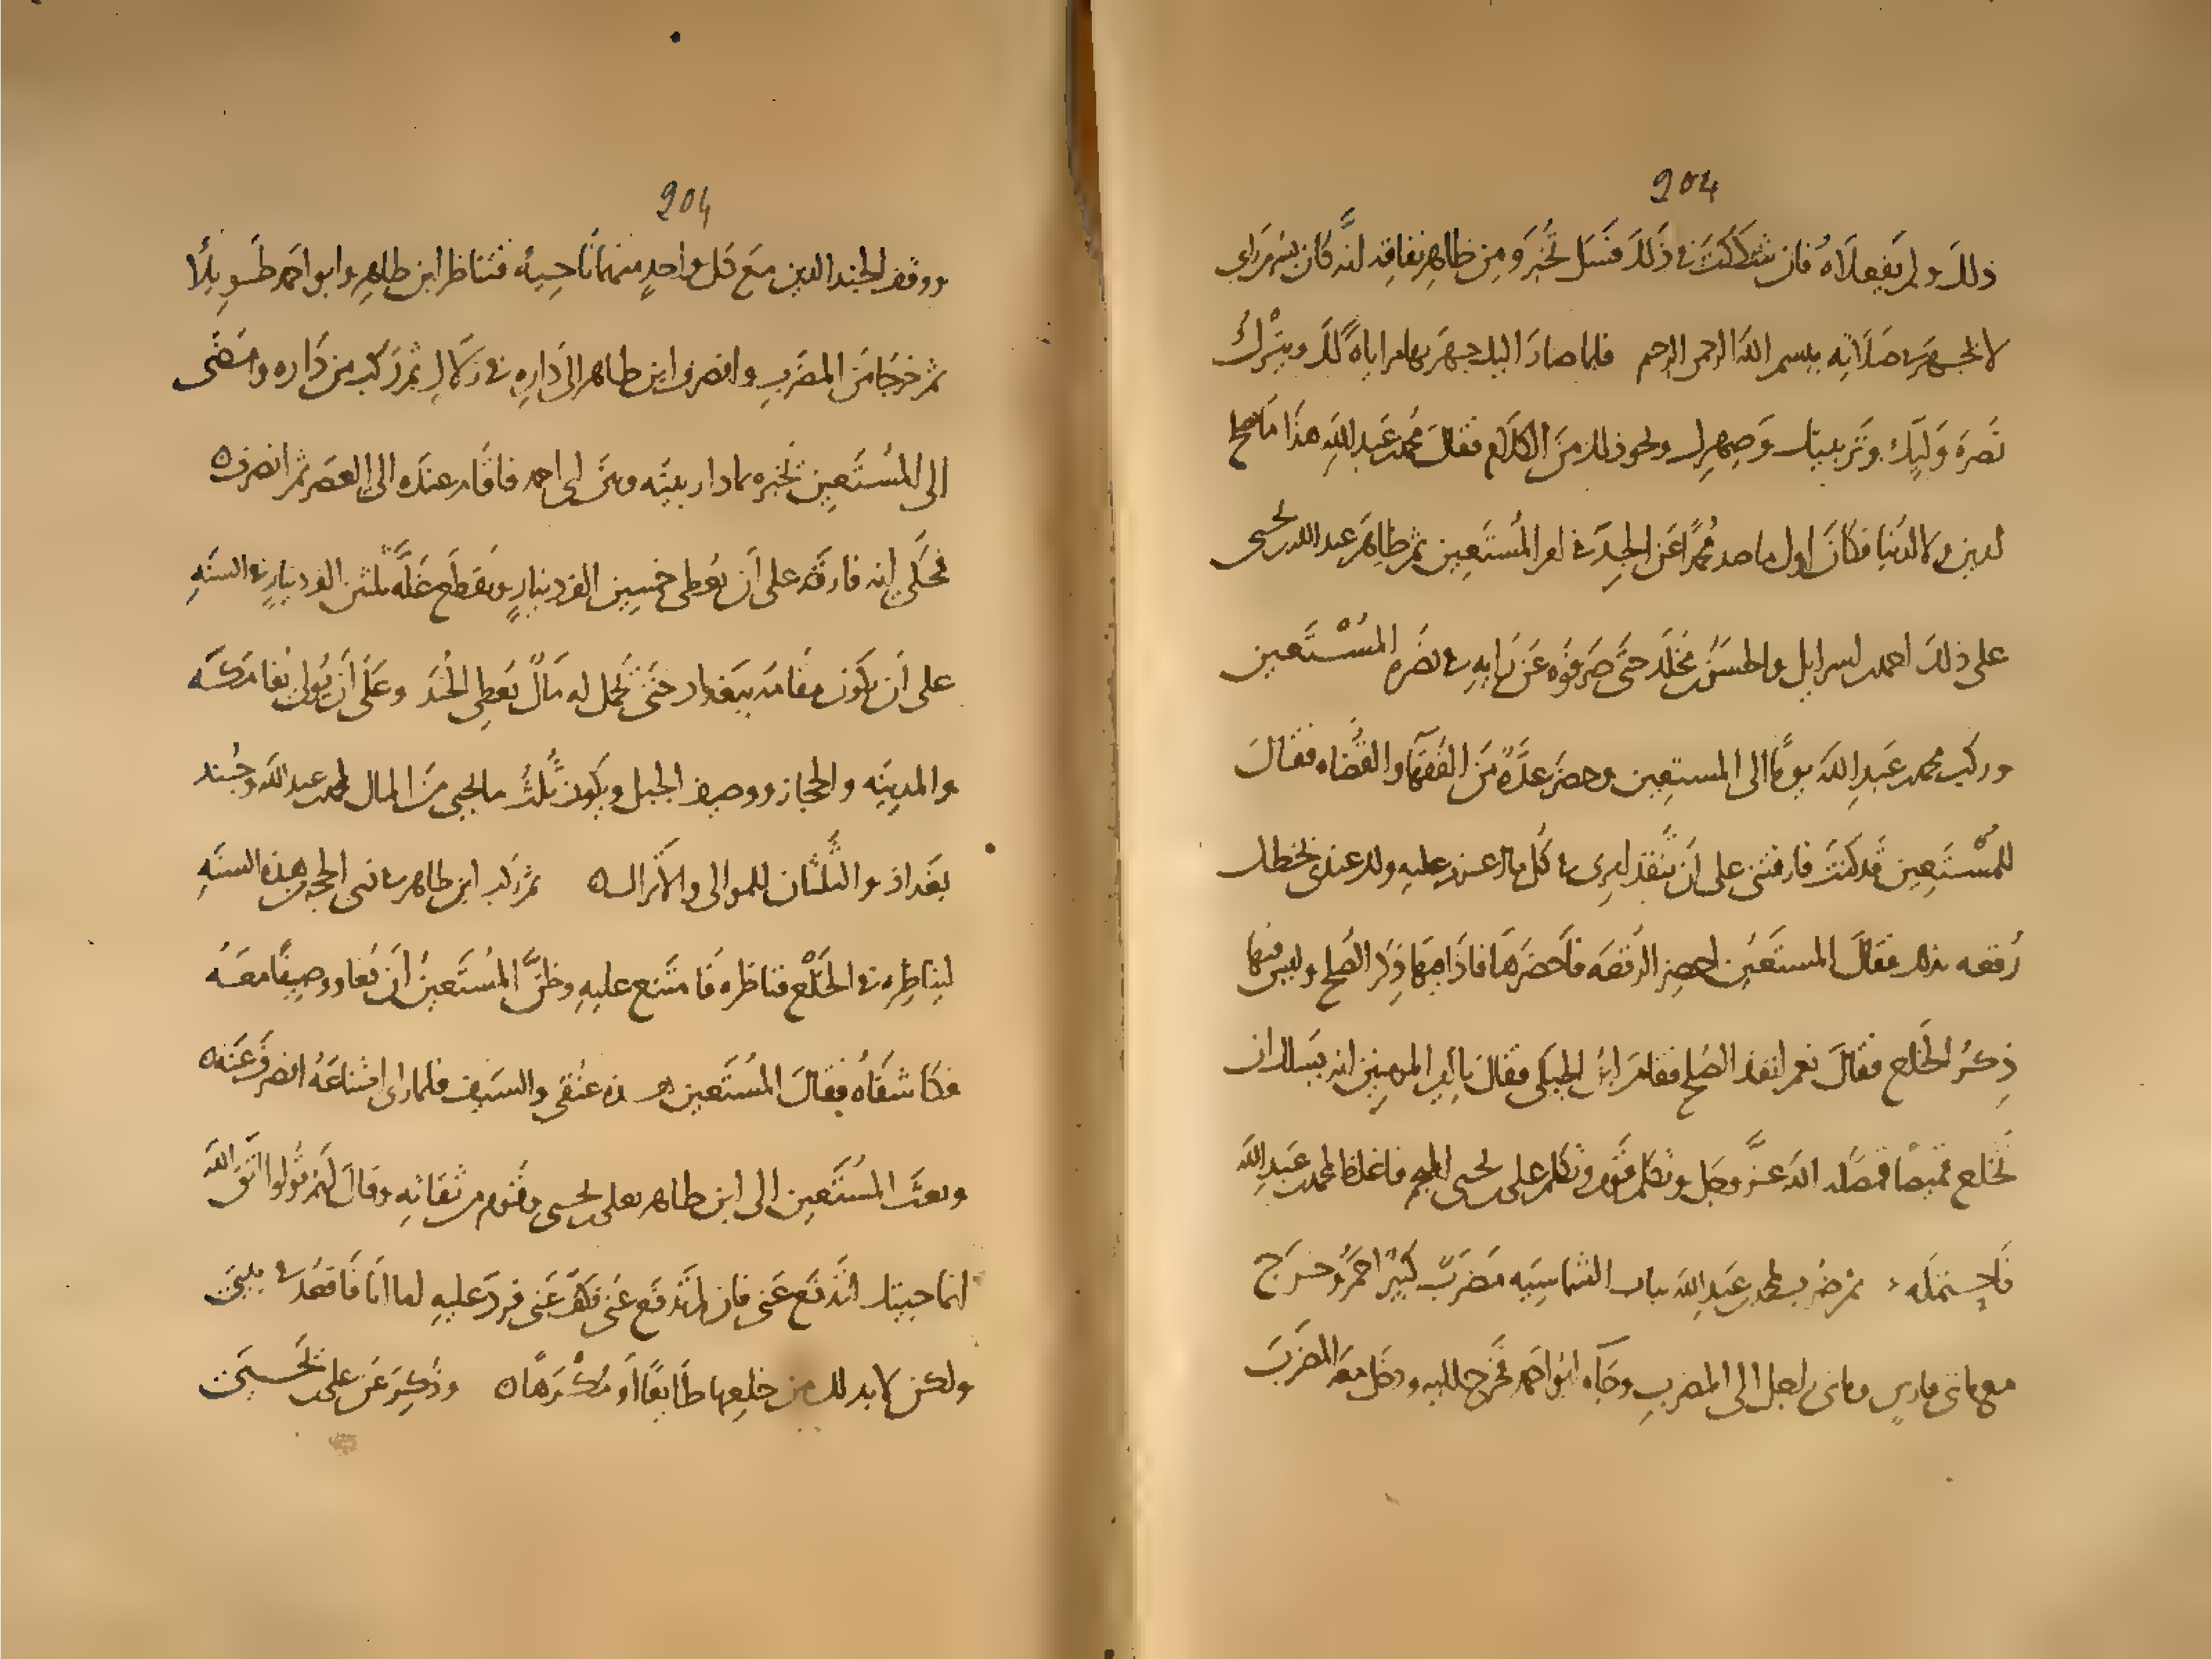 204
ذلك ولم يفعلاه فان شككت في ذلك فسل تخبر ومن ظاهر نفاقه انه كان بسرمراى
لا يجهر في صلاته ببسم الله الرحمن الرحيم فلما صار اليك جهر بها مراياة لك ويترك
نصرة وليك وتربيتك وصهرك ونحو ذلك من الكلام فقال محمد بن عبد الله هذا ما يصلح
لدين ولا لدنيا فكان اول ما صد محمدا عن الجد في امر المستعين ثم ظاهر عبيد الله بن يحيى
على ذلك احمد بن اسرايل والحسن بن مخلد حتى صرفوه عن رايه في نصره المستعين
وركب محمد بن عبد الله يوما الى المستعين وحضر عدة من الفقها والقضاه فقال
للمستعين قد كنت فارقتني على ان تنفذ امرى في كل ما اعزم عليه ولك عندى بخطك
رقعه بذلك فقال المستعين احضر الرقعه فاحضرها فاذا فيها ذكر الصلح وليس فيها
ذكر الخلع فقال نعم انفذ الصلح فقام ابن الخلنجى فقال يا امير المومنين انه يسلك ان
تخلع قميصا قمصكه الله عز وجل وتكلم قوم وتكلم على بن يحيى المنجم فاغلظ لمحمد بن عبد الله
فاحتمله ثم ضرب لمحمد بن عبد الله بباب الشماسيه مضرب كبير احمر وخرج
معه مائتى فارس ومائتى راجل الى المضرب وجاه ابو احمد فخرج اليه ودخل معه المضرب
204
ووقف الجند الذين مع كل واحد منهما ناحيه فتناظر ابن طاهر وابو احمد طويلا
ثم خرجا من المضرب وانصرف ابن طاهر الى داره في زلال ثم ركب من داره ومضى
الى المستعين يخبره بما دار بينه وبين ابى احمد فاقام عنده الى العصر ثم انصرف ه
فحكى انه فارقه على ان يعطى خمسين الف دينار ويقطع غلة ثلثين الف دينار في السنه
على ان يكون مقامه ببغداد حتى يحمل له مال يعطى الجند وعلى ان يولى بغا مكه
والمدينه والحجاز ووصيف الجبل ويكون ثلث ما يجبى من المال لمحمد بن عبد الله وجند
بغداد والثلثان للموالى والاتراك ه ثم ركب ابن طاهر في ذى الحجه من هذه السنه
ليناظره في الخلع فناظره فامتنع عليه وظن المستعين ان بغا ووصيفا معه
فكاشفاه فقال المستعين هذه عنقى والسيف فلما راى امتناعه انصرف عنه ه
وبعث المستعين الى ابن طاهر بعلى بن يحيى وقوم من ثقاته وقال لهم قولوا اتق الله
انما جيتك لتدفع عنى فان لم تدفع عنى فكف عنى فرد عليه اما انا فاقعد في بيتى
ولكن لا بد لك من خلعها طايعا او مكرها ه وذكر عن على بن يحيى